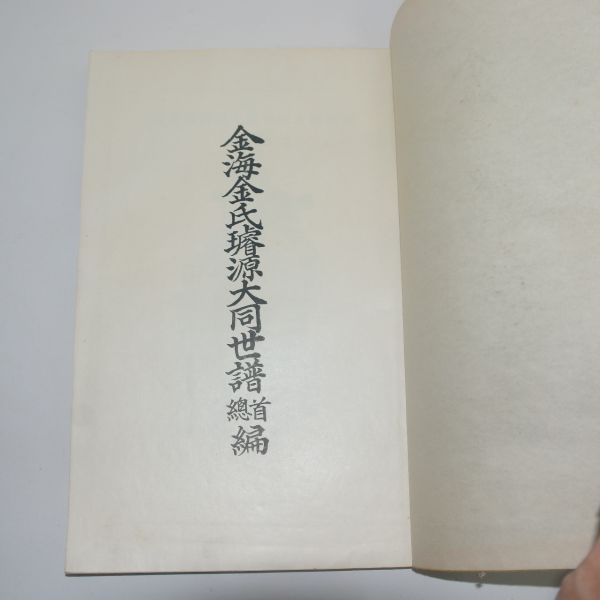 金海金氏璿源大同世譜
首總
編